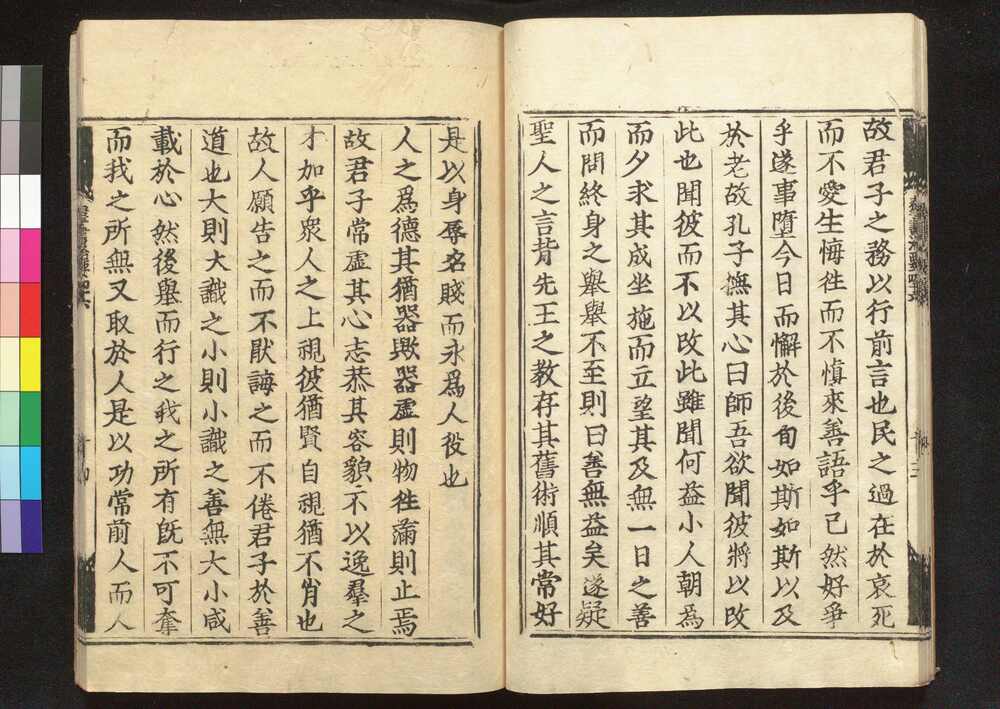 故君子之務以行前言也民之過在於哀死
而不愛生悔徃而不慎來善語乎己然好爭
乎遂事墮今日而懈於後旬如斯如斯以及
於老故孔子撫其心曰師吾欲聞彼將以改
此也聞彼而不以改此雖聞何益小人朝爲
而夕求其成坐施而立望其及無一日之善
而問終身之舉舉不至則曰善無益矣遂疑
聖人之言背先王之教存其舊術順其常好
是以身辱名賤而永爲人役也
人之爲德其猶器歟器虛則物徃滿則止焉
故君子常虛其心志恭其容貌不以逸羣之
才加乎衆人之上視彼猶賢自視猶不肖也
故人願告之而不猒誨之而不倦君子於善
道也大則大識之小則小識之善無大小咸
載於心然後舉而行之我之所有旣不可奪
而我之所無又取於人是以功常前人而人